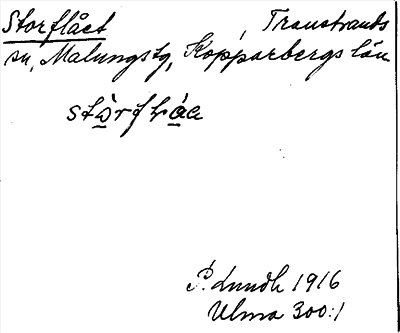 Storflået, Transtrands
sn, Malungs tg, Kopparbergs län
P. Lundh 1916
Ulma 300:1